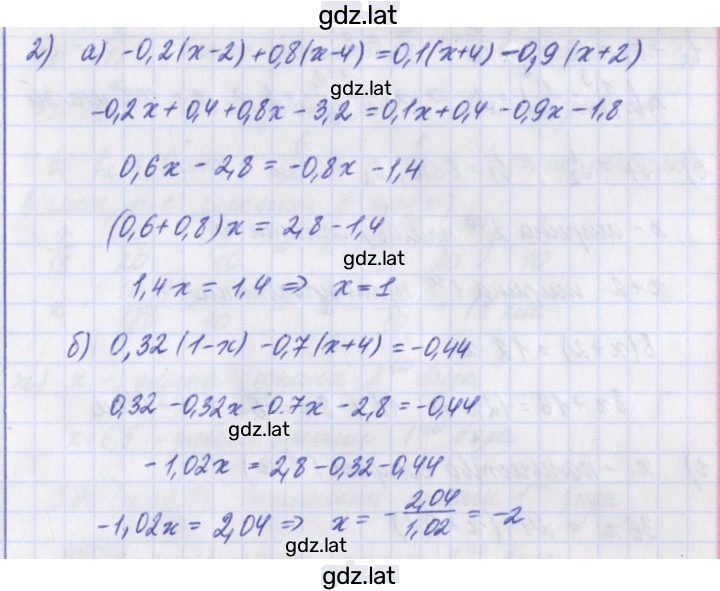 gdz.lat
2) а) -0,2(x-2)+0,8(x-4)=0,1(x+4)-0,9(x+2)
gdz.lat
-0,2x+0,4+0,8x-3,2=0,1x+0,4-0,9x-1,8
0,6x-2,8=-0,8x-1,4
(0,6+0,8)x=2,8-1,4
gdz.lat
1,4x=1,4 => x=1
б) 0,32(1-x)-0,7(x+4)=-0,44
0,32-0,32x-0.7x-2,8=-0,44
gdz.lat
-1,02x=2,8-0,32-0,44
-1,02x=2,04 => x=-2,04/1,02=-2
gdz.lat
gdz.lat